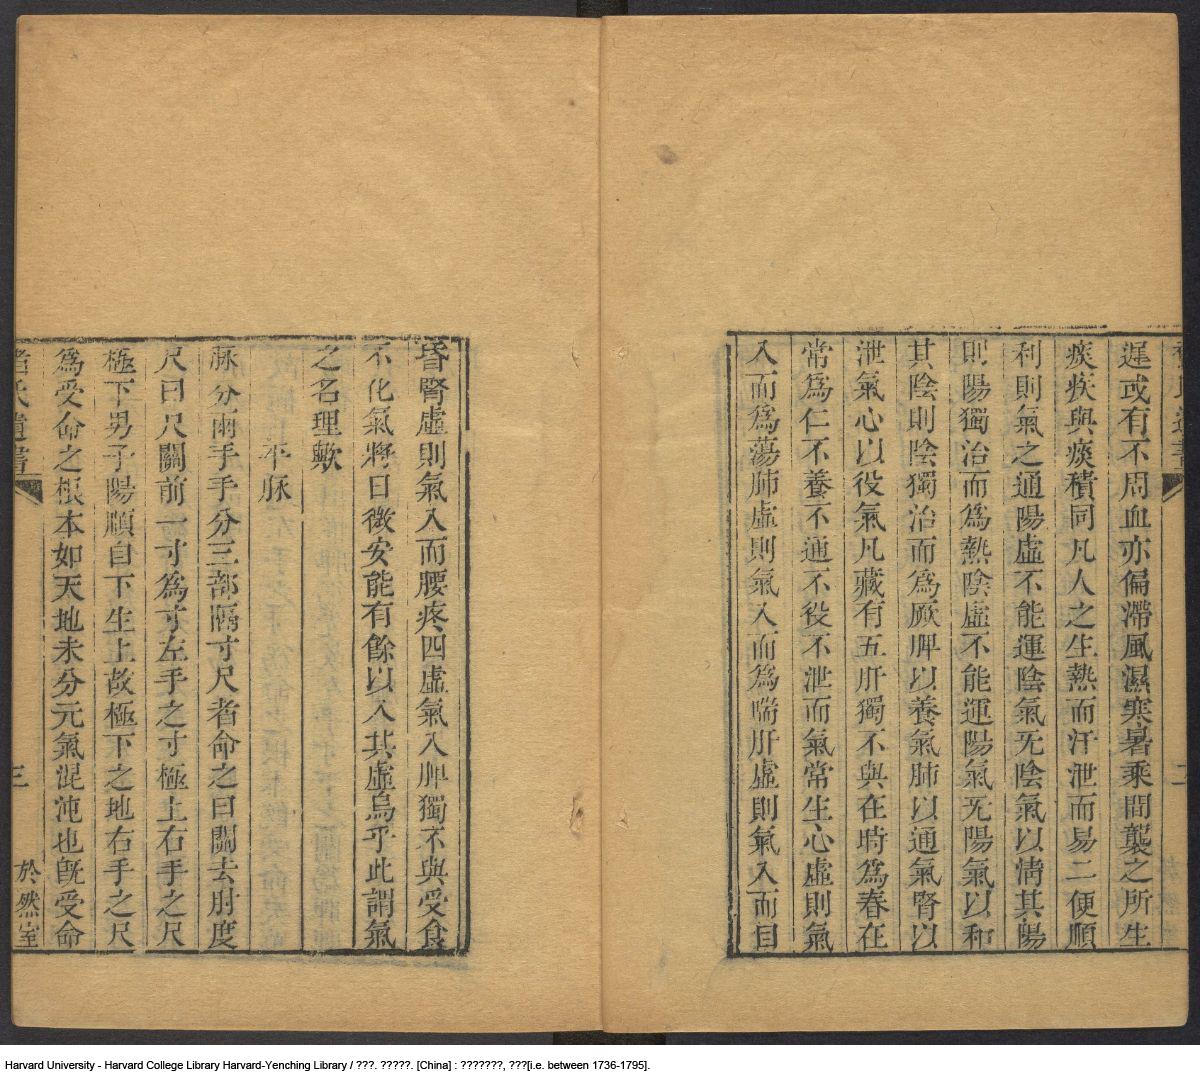 遲或有不周血亦偏滯風濕寒暑乘間襲之所生
痰疾與痰積同凡人之生熱而汗泄而易二便順
利則氣之通陽虛不能運陰氣无陰氣以清其陽
則陽獨治而為熱陰虛不能運陽氣无陽氣以和
其陰則陰獨治而為厥脾以養氣肺以通氣腎以
泄氣心以役氣凡藏有五肝獨不與在時為春在
常為仁不養不通不役不泄而氣常生心虛則氣
入而為蕩肺虛則氣入而為喘肝虛則氣入而目
昏腎虛則氣入而腰疼四虛氣入脾獨不與受食
不化氣將日微安能有餘以入其虛烏乎此謂氣
之名理歟
平脉
脉分兩手手分三部隔寸尺者命之曰關去肘度
尺曰尺關前一寸為寸左手之寸極上右手之尺
極下男子陽順自下生上故極下之地右手之尺
為受命之根本如天地未分元氣混沌也旣受命
褚氏遺書
三
於然室
Harvard University - Harvard College Library Harvard-Yenching Library / ???. ?????. [China] : ???????, ???[i.e. between 1736-1795].